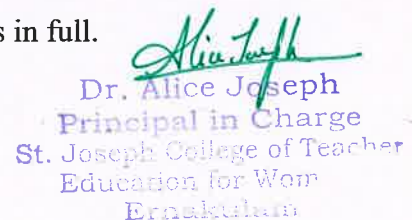 s in full.
Alice Joseph
Dr. Alice Joseph
Principal in Charge
St. Joseph College of Teacher
Education for Wom
Ernakulam